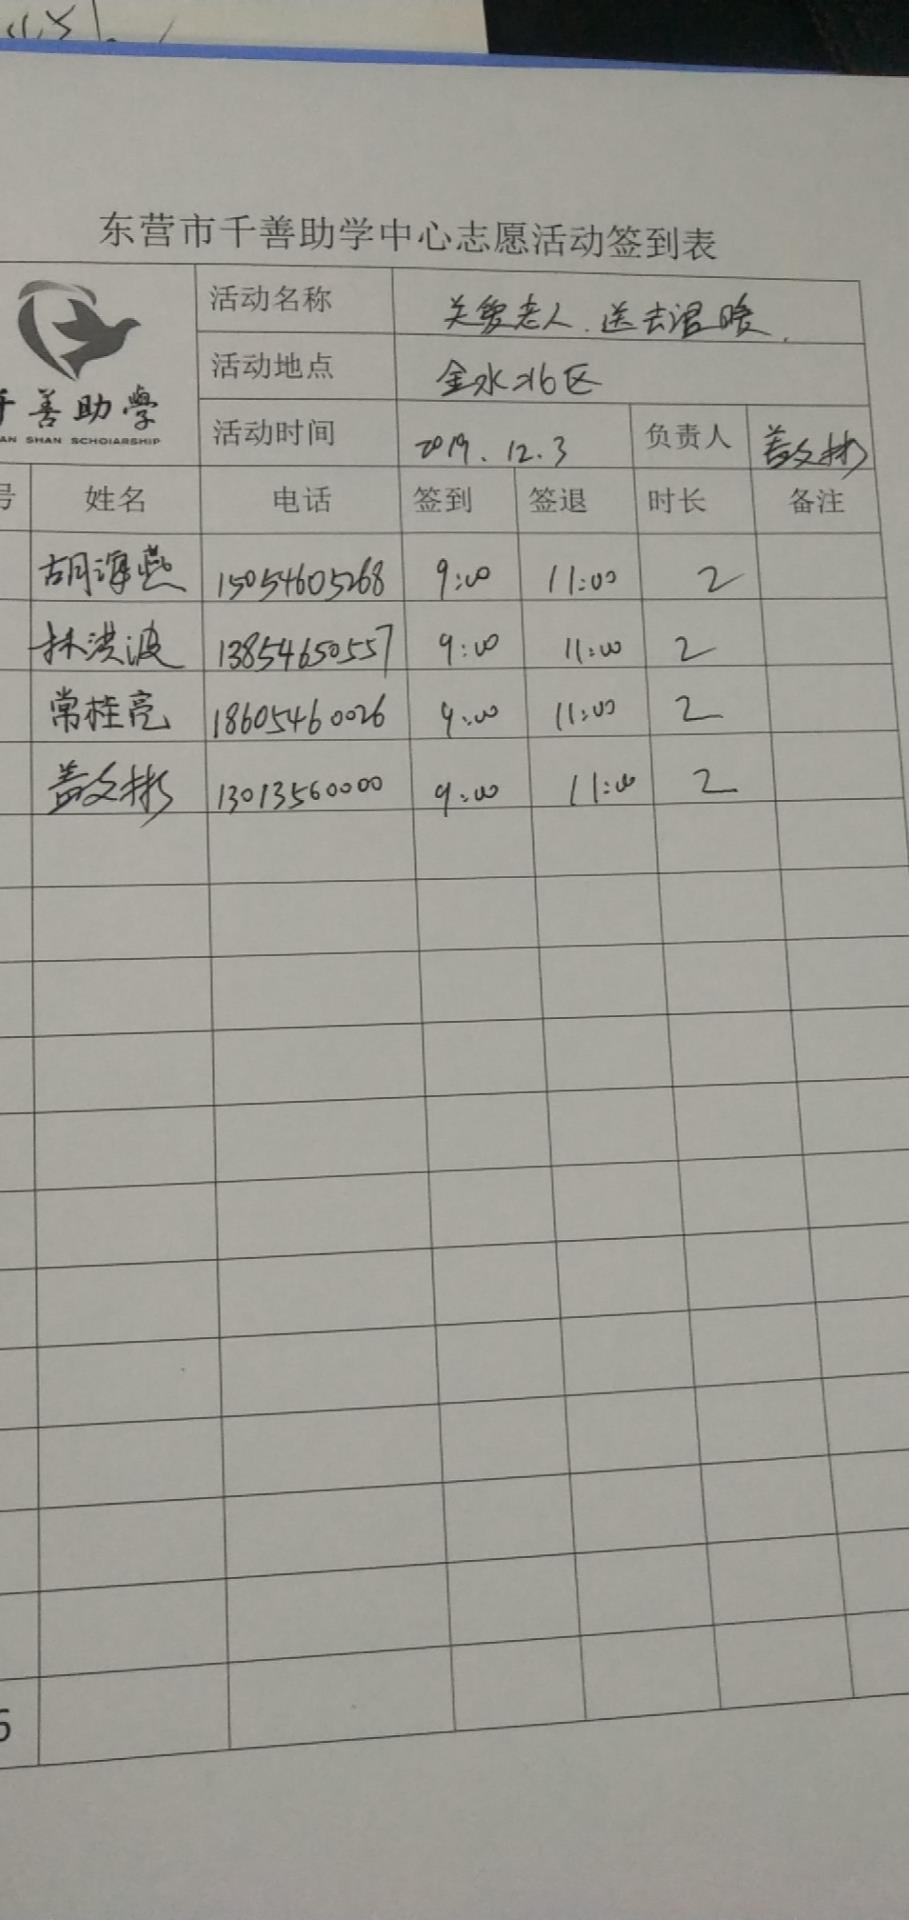 东营市千善助学中心志愿活动签到表
千善助学
AN SHAN SCHOLARSHIP
活动名称 关爱老人.送去温暖.
活动地点 金水北区
活动时间 2019.12.3 负责人 盖文彬
号 姓名 电话 签到 签退 时长 备注
胡海燕 15054605268 9:00 11:00 2
林洪波 13854650557 9:00 11:00 2
常桂亮 18605460026 9:00 11:00 2
盖文彬 13013560000 9:00 11:00 2
6